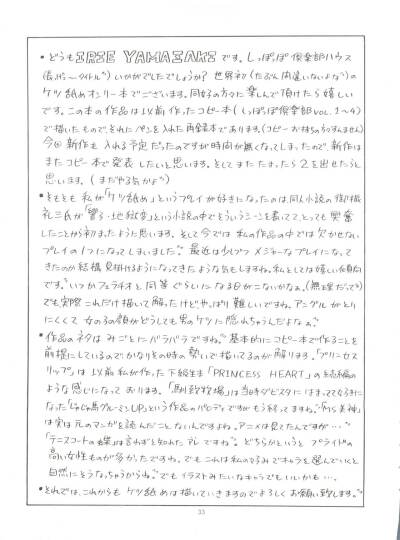 ・どうも IRIE YAMAZAKI です。しっぽっぽ倶楽部ハウス
(長いぜ〜タイトル゛)いかがでしたでしょうか?世界初(たぶん間違いないよな゛)の
ケツ舐めオンリー本でございます。同好の方々に楽しんで頂けたら嬉しい
です。この本の作品は以前作ったコピー本(しっぽっぽ倶楽部VOL.1〜4)
で描いたものでそれにペンを入れた再録本であります。(コピー本お持ちの方すんません)
今回新作も入れる予定だったのですが時間が無くなってしまったので、新作は
またコピー本で発表したいと思います。そしてまたたまったら2を出せたらと
思います。(まだやる気かよ゛)
・そもそも私が「ケツ舐め」というプレイが好きになったのは、同人小説の御堀
礼三氏が「響子・地獄変」という小説の中でそういうシーンを書いてて、とっても興奮
したことから初まったように思います。そして今では私の作品の中では欠かせない
プレイの1つになってしまいました゛最近は少しづつメジャーなプレイになっ
てきたのか結構見掛けるようになってきたような気もしますね。私としては嬉しい傾向
です゛いつかフェラチオと同等ぐらいになる日がこないかなぁ。(無理だって゛)
でも実際これだけ描いて解ったけど、やっぱり難しいですね。アングルがとり
にくくて女の子の顔がどうしても男のケツに隠れちゃうんだよなぁ。
・作品のネタはみごとにバラバラですね゛基本的にコピー本で作ることを
前提にしているのでかなりその時の勢いで描いてるのが解ります。「プリンセス
リップ」は以前私が作った下級生本「PRINCESS HEART」の続編の
ような感じになっております。「馴致牧場」は当時ダビスタにはまってて好きに
なった「じゃじゃ馬グルーミンUP」という作品のパロディですがもう終ってますね゛「
は実は元のマンガを読んだことないんですよね。アニメは見てたんですが…゛
「テニスコートの蝶」は言わずと知れたアレですね゛どちらかというとプライドの
高い女性ものが多かったですね。でもこれは私の好みでキャラを選んでいくと
自然にそうなっちゃうからね゛でもイラストみたいなキャラでもいいかも…。
・それでは、これからもケツ舐めは描いていきますのでよろしくお願い致します。゛
33